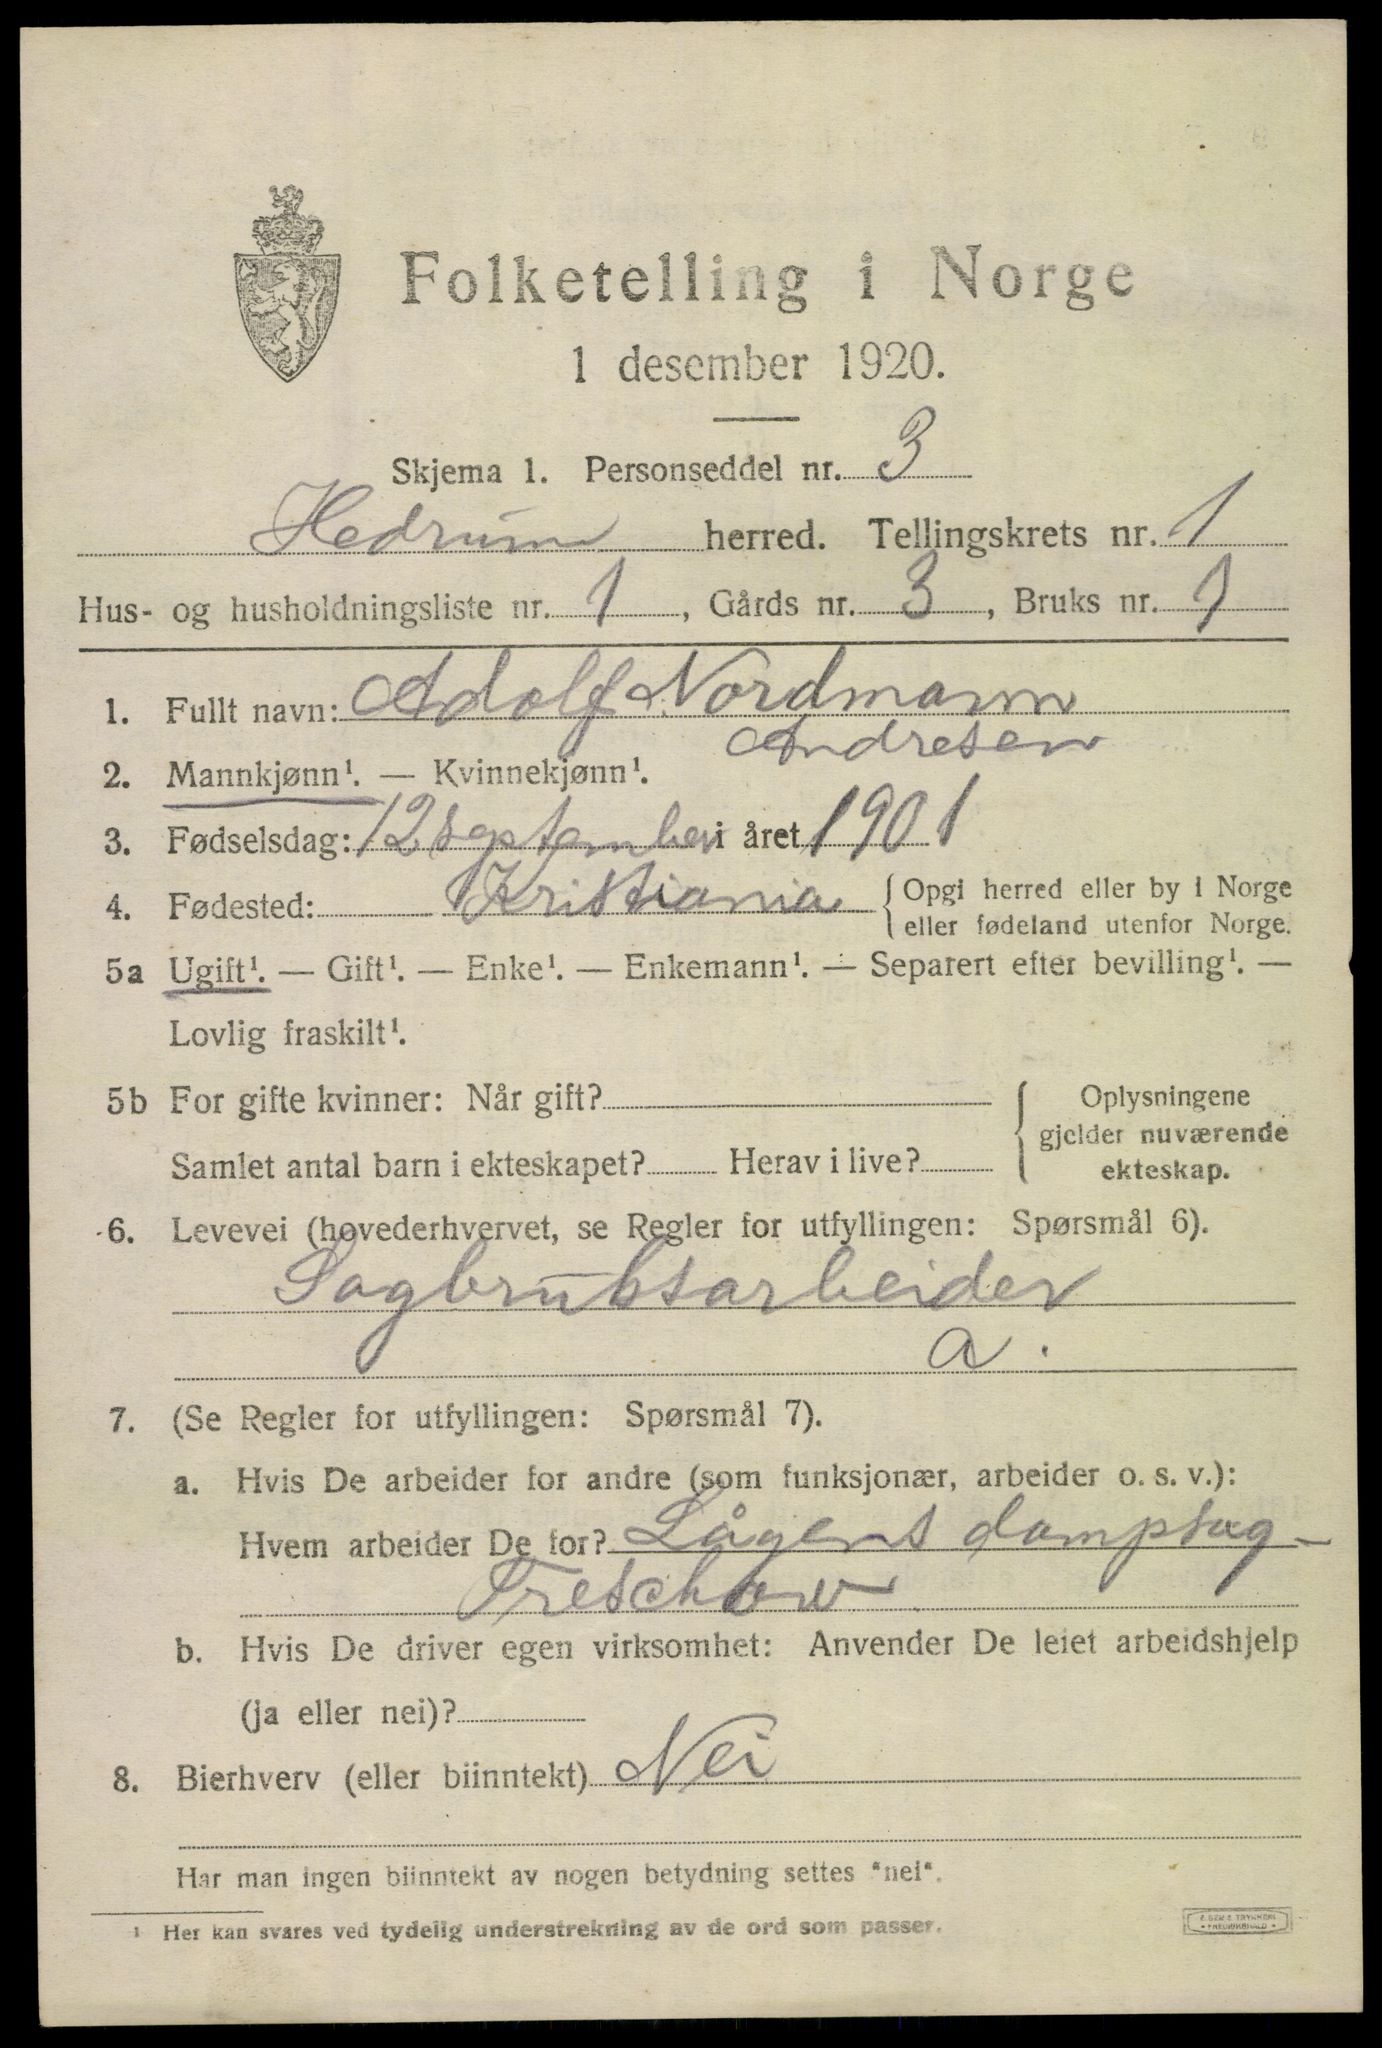 Folketelling i Norge
1 desember 1920.
Skjema 1. Personseddel nr. 3
Hedrum herred. Tellingskrets nr. 1
Hus- og husholdningsliste nr. 1, Gårds nr. 3, Bruks nr. 1
1. Fullt navn: Adolf Nordmann
Andresen
2. Mannkjønn¹. — Kvinnekjønn¹.
3. Fødselsdag: 12 september i året 1901
4. Fødested: Kristiania { Opgi herred eller by i Norge
eller fødeland utenfor Norge.
5a Ugift¹. — Gift¹. — Enke¹. — Enkemann¹. — Separert efter bevilling¹. —
Lovlig fraskilt¹.
5b For gifte kvinner: Når gift? { Oplysningene
gjelder nuværende
Samlet antal barn i ekteskapet? Herav i live? ekteskap.
6. Levevei (hovederhvervet, se Regler for utfyllingen: Spørsmål 6).
Sagbruksarbeider
a.
7. (Se Regler for utfyllingen: Spørsmål 7).
a. Hvis De arbeider for andre (som funksjonær, arbeider o. s. v.):
Hvem arbeider De for? Lågens dampsag -
Treschow
b. Hvis De driver egen virksomhet: Anvender De leiet arbeidshjelp
(ja eller nei)?
8. Bierhverv (eller biinntekt) Nei
Har man ingen biinntekt av nogen betydning settes "nei".
¹ Her kan svares ved tydelig understrekning av de ord som passer.